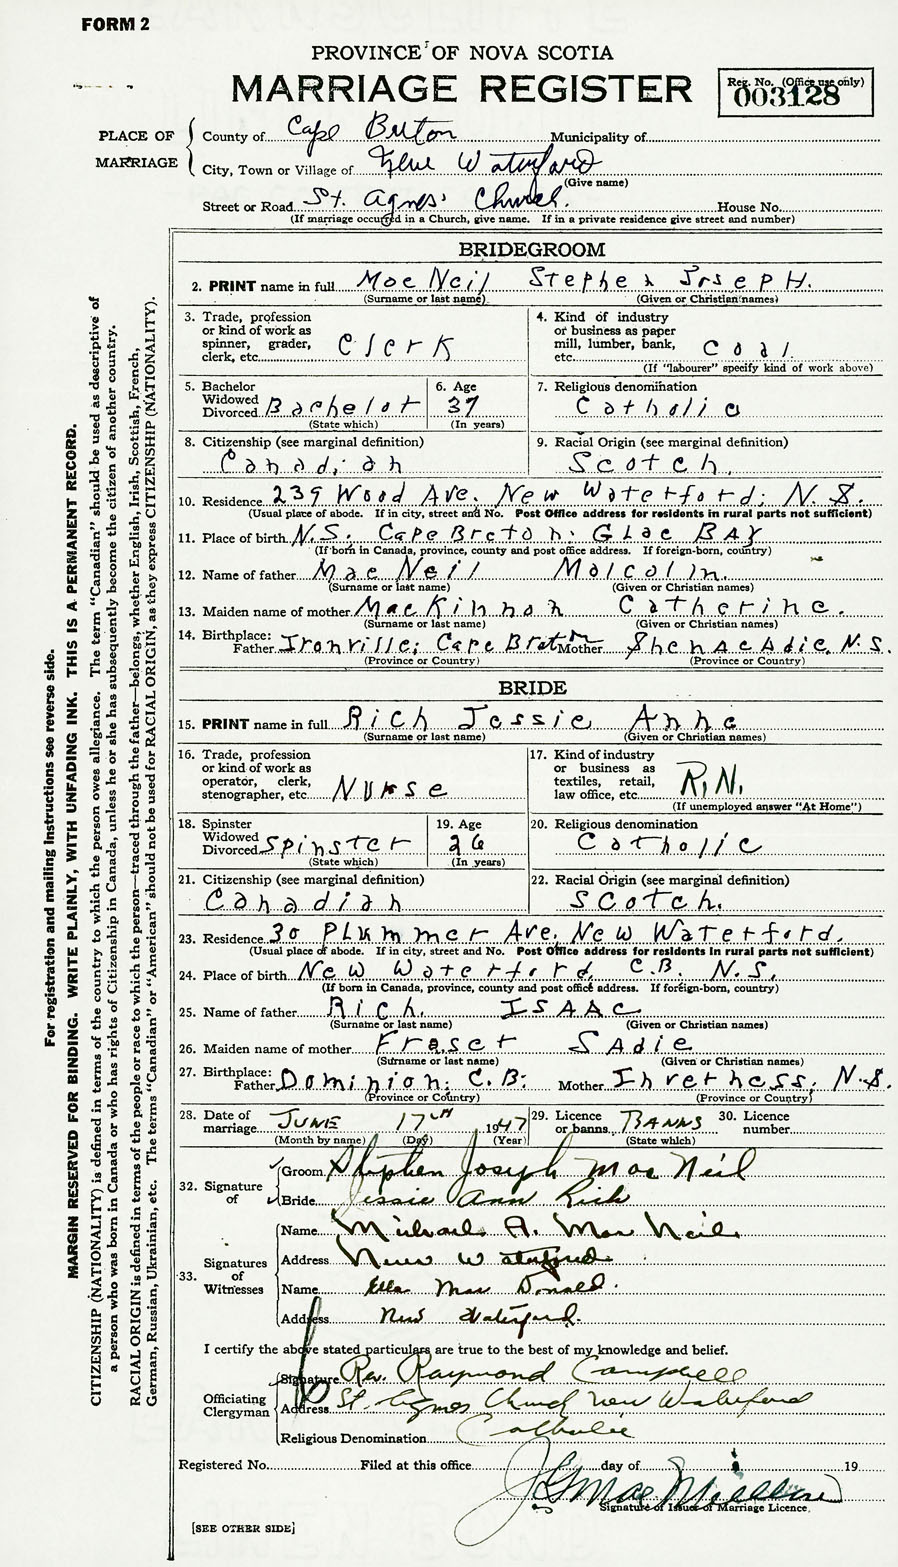 FORM 2
PROVINCE OF NOVA SCOTIA
MARRIAGE REGISTER
Reg. No. (Office use only)
003128
PLACE OF MARRIAGE
County of Cape Breton Municipality of
City, Town or Village of New Waterford
(Give name)
Street or Road St. Agnes' Church. House No.
(If marriage occurred in a Church, give name. If in a private residence give street and number)
BRIDEGROOM
2. PRINT name in full MacNeil Stephen Joseph.
(Surname or last name) (Given or Christian names)
3. Trade, profession or kind of work as spinner, grader, clerk, etc. Clerk
4. Kind of industry or business as paper mill, lumber, bank, etc. Coal.
(If "labourer" specify kind of work above)
5. Bachelor Widowed Divorced Bachelor
(State which)
6. Age 37
(In years)
7. Religious denomination Catholic
8. Citizenship (see marginal definition) Canadian
9. Racial Origin (see marginal definition) Scotch.
10. Residence 239 Wood Ave. New Waterford; N.S.
(Usual place of abode. If in city, street and No. Post Office address for residents in rural parts not sufficient)
11. Place of birth N.S. Cape Breton; Glac Bay
(If born in Canada, province, county and post office address. If foreign-born, country)
12. Name of father MacNeil Malcolm.
(Surname or last name) (Given or Christian names)
13. Maiden name of mother MacKinnon Catherine.
(Surname or last name) (Given or Christian names)
14. Birthplace: Father Ironville; Cape Breton Mother Shenacadie. N.S.
(Province or Country) (Province or Country)
BRIDE
15. PRINT name in full Rich Jessie Anne
(Surname or last name) (Given or Christian names)
16. Trade, profession or kind of work as operator, clerk, stenographer, etc. Nurse
17. Kind of industry or business as textiles, retail, law office, etc. R.N.
(If unemployed answer "At Home")
18. Spinster Widowed Divorced Spinster
(State which)
19. Age 26
(In years)
20. Religious denomination Catholic
21. Citizenship (see marginal definition) Canadian
22. Racial Origin (see marginal definition) Scotch.
23. Residence 30 Plummer Ave. New Waterford.
(Usual place of abode. If in city, street and No. Post Office address for residents in rural parts not sufficient)
24. Place of birth New Waterford C.B. N.S.
(If born in Canada, province, county and post office address. If foreign-born, country)
25. Name of father Rich. Isaac
(Surname or last name) (Given or Christian names)
26. Maiden name of mother Fraser Sadie
(Surname or last name) (Given or Christian names)
27. Birthplace: Father Dominion; C.B. Mother Inverness; N.S.
(Province or Country) (Province or Country)
28. Date of marriage June 17th 1947
(Month by name) (Day) (Year)
29. Licence or banns Banns
(State which)
30. Licence number
32. Signature of
Groom Stephen Joseph MacNeil
Bride Jessie Ann Rich
33. Signatures of Witnesses
Name Michael A. MacNeil
Address New Waterford
Name Ella MacDonald.
Address New Waterford.
I certify the above stated particulars are true to the best of my knowledge and belief.
Officiating Clergyman
Signature Rev. Raymond Campbell
Address St. Agnes Church New Waterford
Religious Denomination Catholic
Registered No. Filed at this office day of 19
Signature of Issuer of Marriage Licence.
[SEE OTHER SIDE]
For registration and mailing instructions see reverse side.
MARGIN RESERVED FOR BINDING. WRITE PLAINLY, WITH UNFADING INK. THIS IS A PERMANENT RECORD.
CITIZENSHIP (NATIONALITY) is defined in terms of the country to which the person owes allegiance. The term "Canadian" should be used as descriptive of
a person who was born in Canada or who has rights of Citizenship in Canada, unless he or she has subsequently become the citizen of another country.
RACIAL ORIGIN is defined in terms of the people or race to which the person—traced through the father—belongs, whether English, Irish, Scottish, French,
German, Russian, Ukrainian, etc. The terms "Canadian" or "American" should not be used for RACIAL ORIGIN, as they express CITIZENSHIP (NATIONALITY).